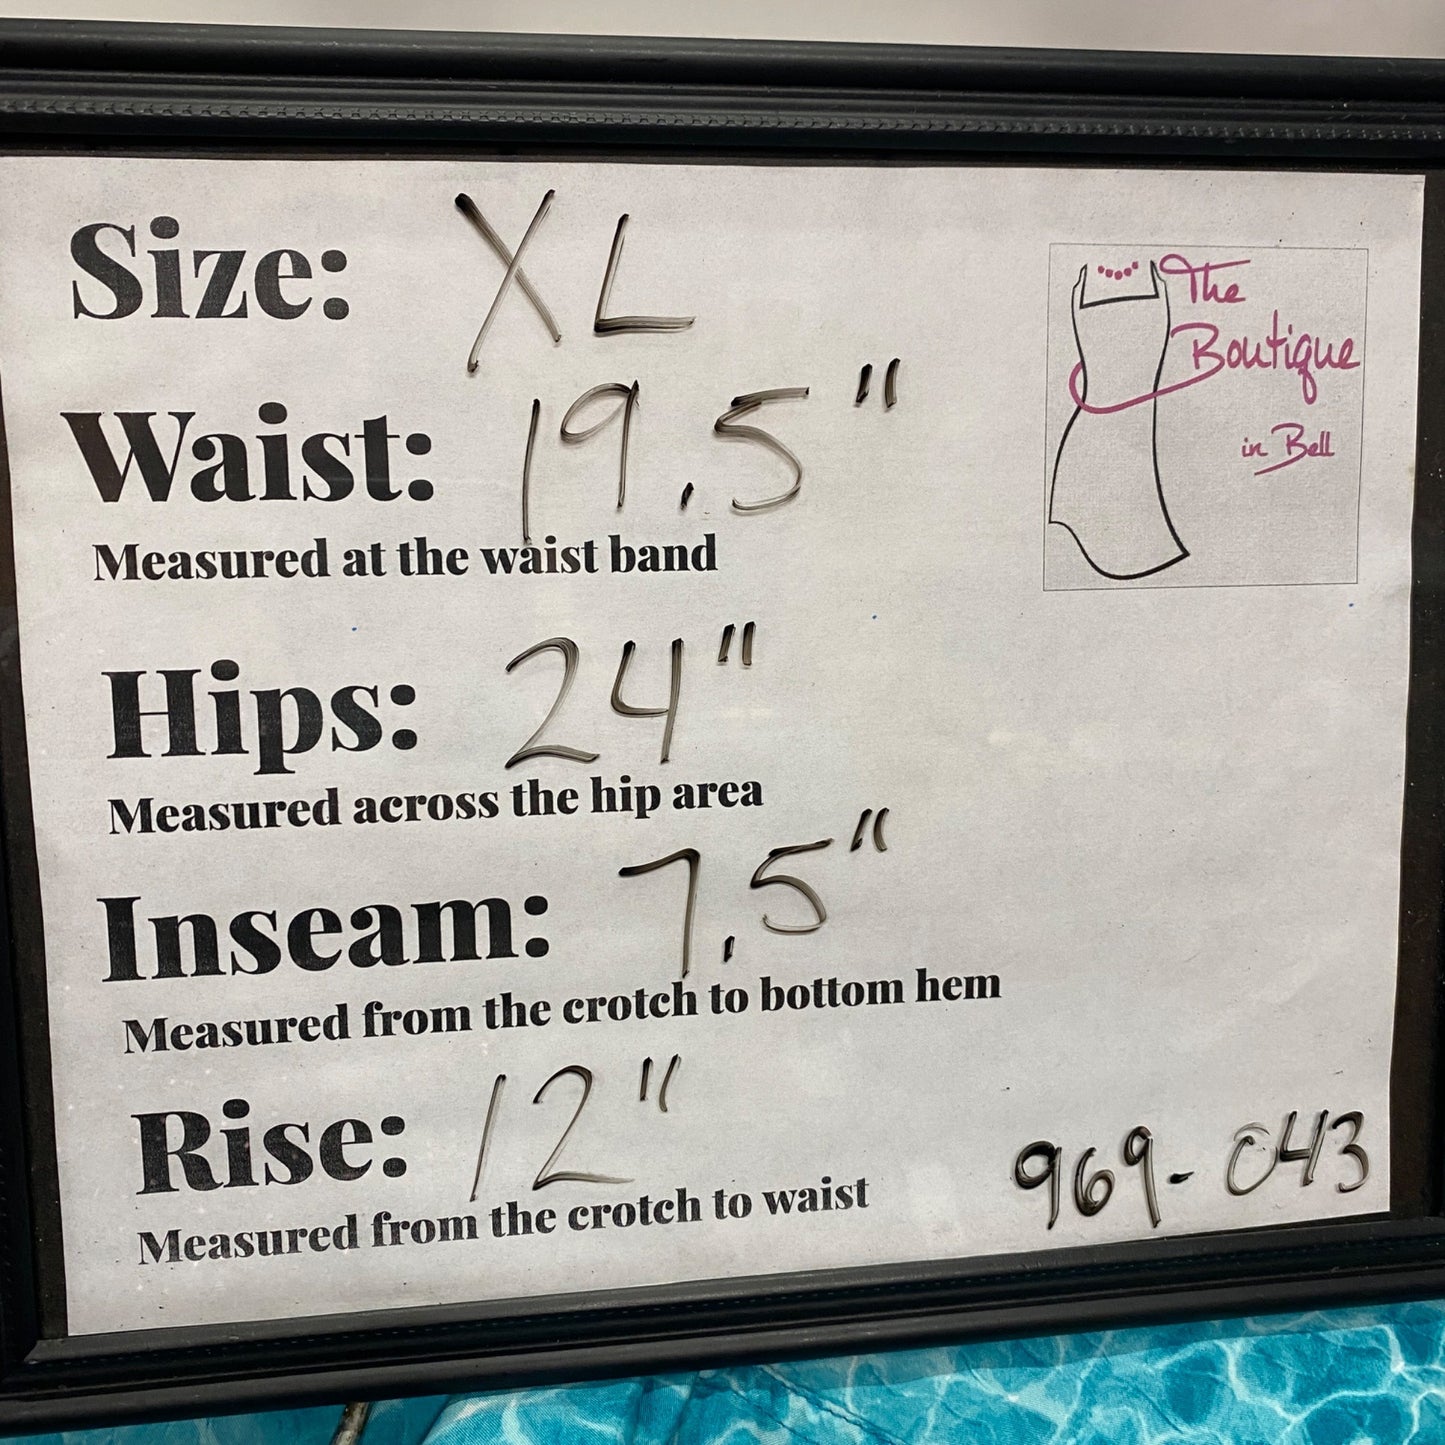 Size: XL
Waist: 19.5"
Measured at the waist band
Hips: 24"
Measured across the hip area
Inseam: 7.5"
Measured from the crotch to bottom hem
Rise: 12"
Measured from the crotch to waist
The
Boutique
in Bell
969-043